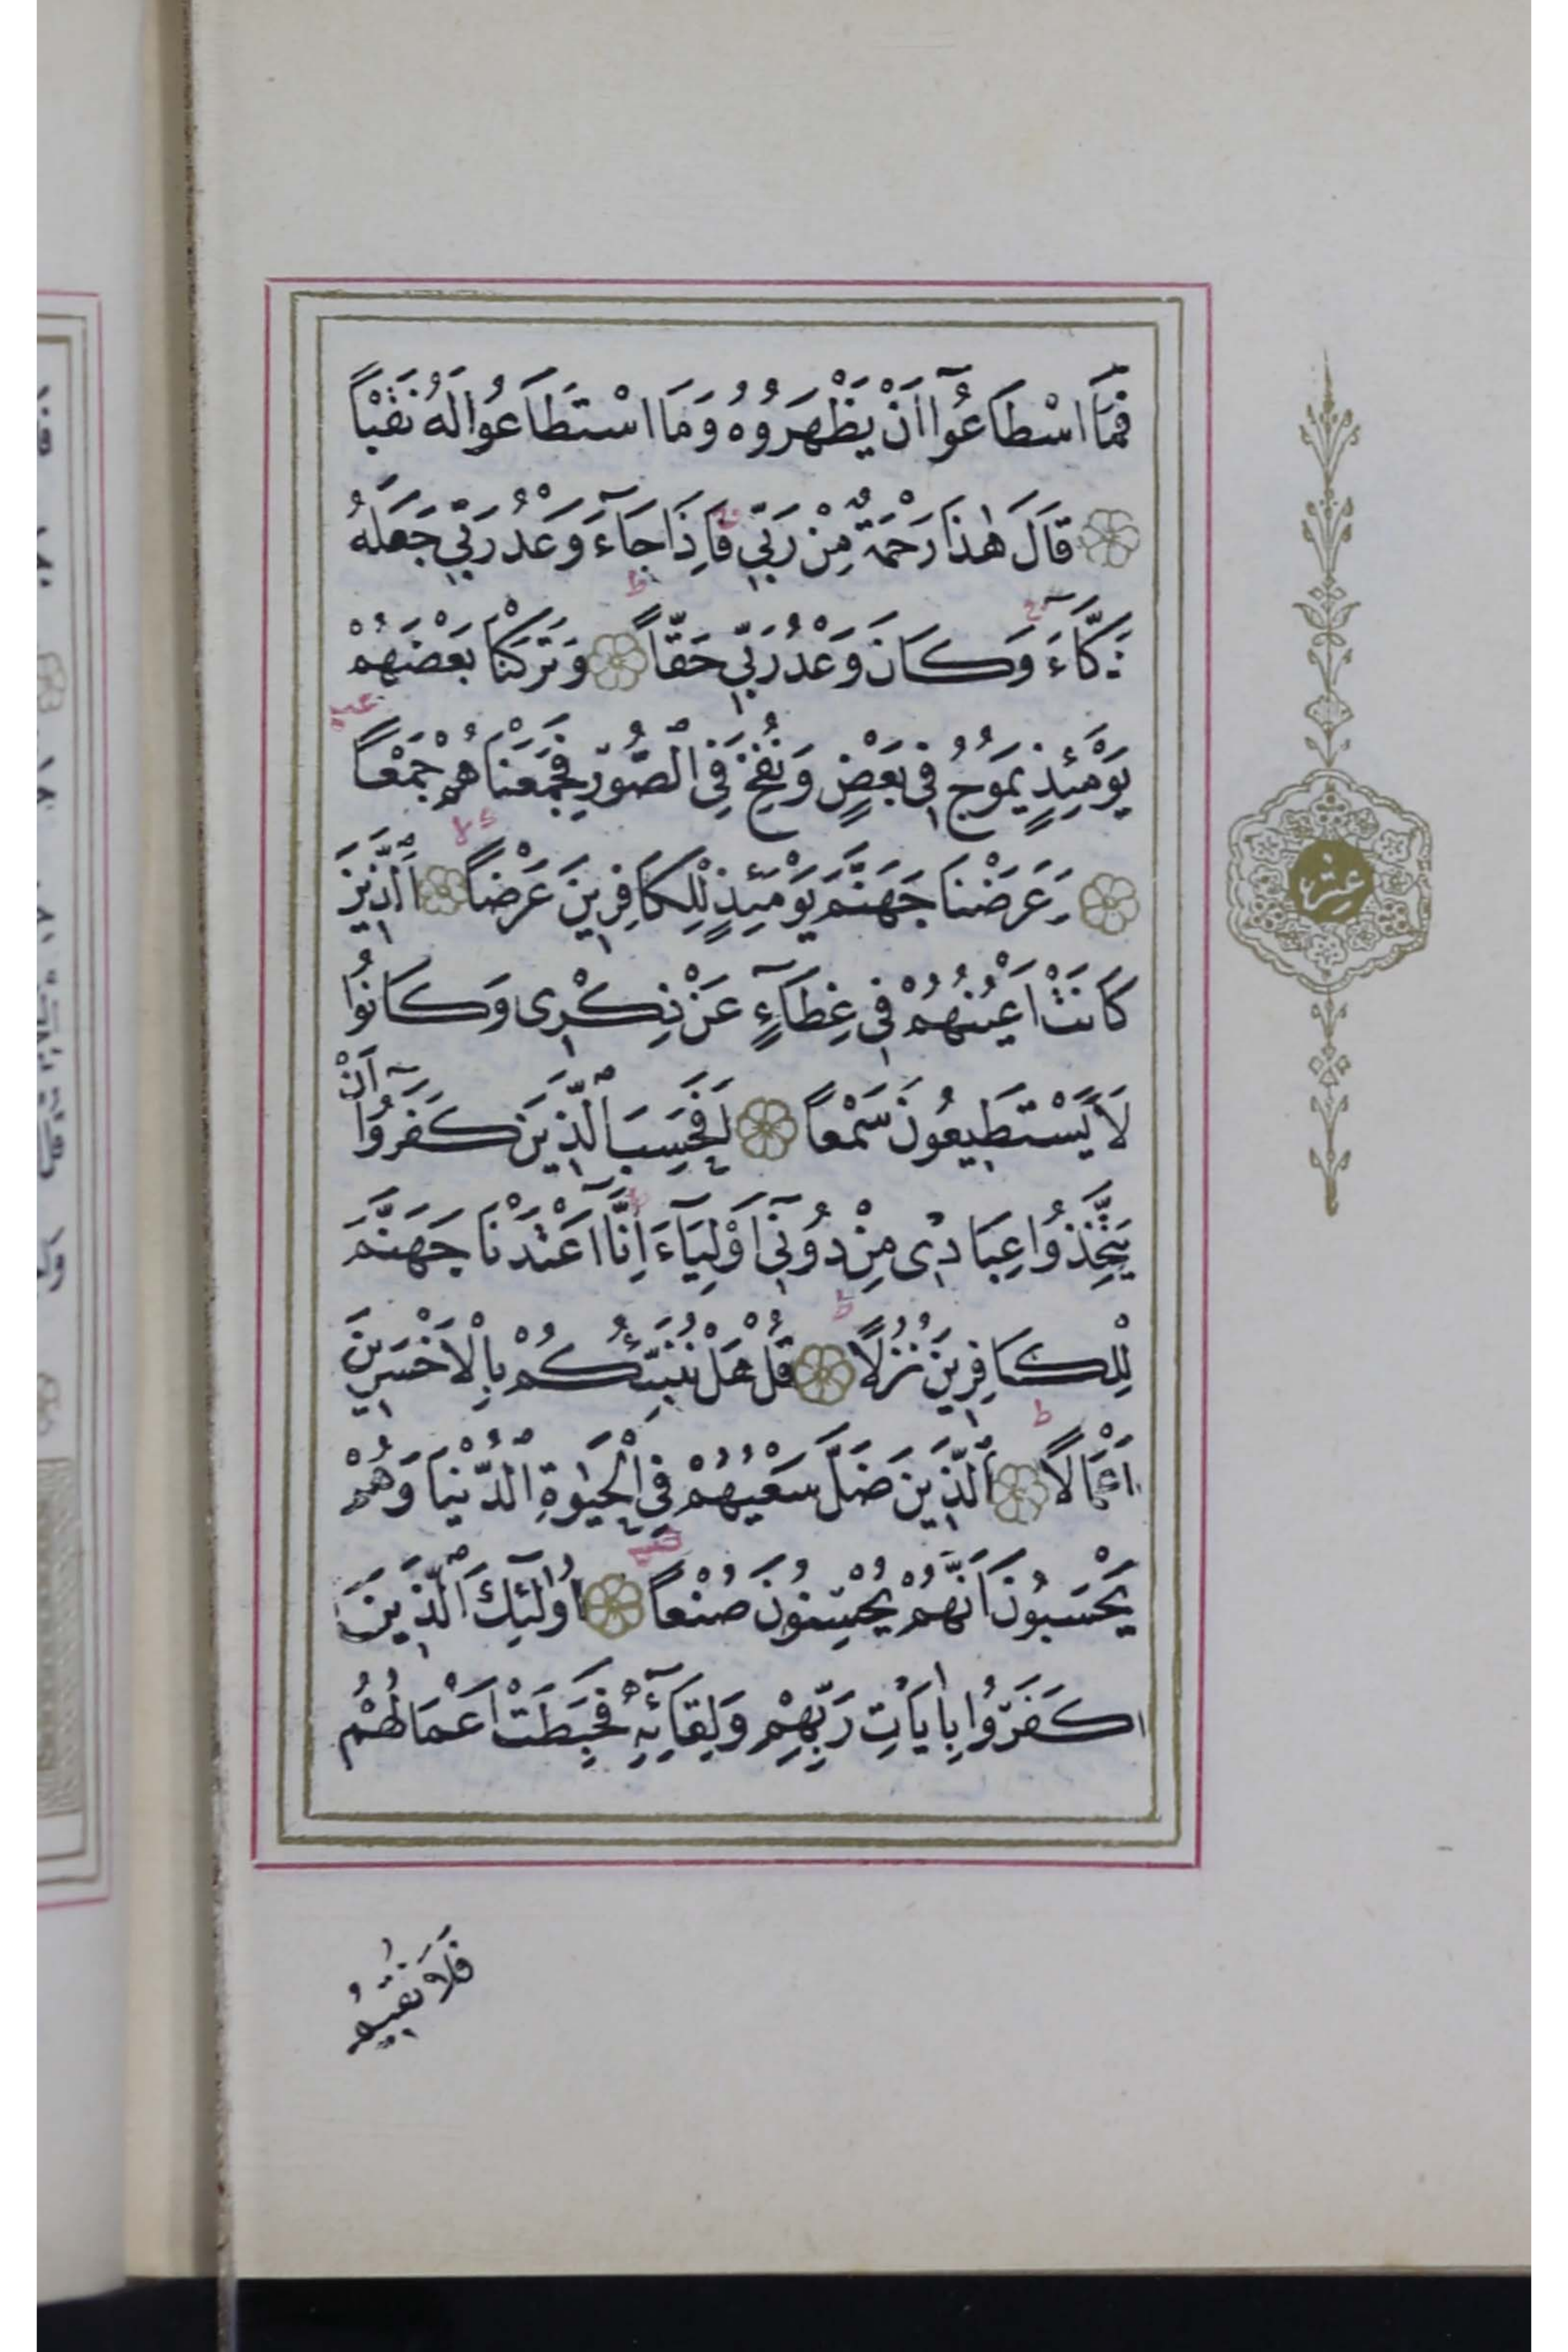 فَمَا اسْطَاعُوٓا اَنْ يَظْهَرُوهُ وَمَا اسْتَطَاعُوا لَهُ نَقْبًا
قَالَ هٰذَا رَحْمَةٌ مِنْ رَبّ۪ي فَاِذَا جَٓاءَ وَعْدُ رَبّ۪ي جَعَلَهُ
دَكَّٓاءَ وَكَانَ وَعْدُ رَبّ۪ي حَقًّا وَتَرَكْنَا بَعْضَهُمْ
يَوْمَئِذٍ يَمُوجُ ف۪ي بَعْضٍ وَنُفِخَ فِي الصُّورِ فَجَمَعْنَاهُمْ جَمْعًا
وَعَرَضْنَا جَهَنَّمَ يَوْمَئِذٍ لِلْكَافِر۪ينَ عَرْضًا اَلَّذ۪ينَ
كَانَتْ اَعْيُنُهُمْ ف۪ي غِطَٓاءٍ عَنْ ذِكْر۪ى وَكَانُوا
لَا يَسْتَط۪يعُونَ سَمْعًا اَفَحَسِبَ الَّذ۪ينَ كَفَرُٓوا اَنْ
يَتَّخِذُوا عِبَاد۪ى مِنْ دُون۪ٓي اَوْلِيَٓاءَ اِنَّٓا اَعْتَدْنَا جَهَنَّمَ
لِلْكَافِر۪ينَ نُزُلًا قُلْ هَلْ نُنَبِّئُكُمْ بِالْاَخْسَر۪ينَ
اَعْمَالًا اَلَّذ۪ينَ ضَلَّ سَعْيُهُمْ فِي الْحَيٰوةِ الدُّنْيَا وَهُمْ
يَحْسَبُونَ اَنَّهُمْ يُحْسِنُونَ صُنْعًا اُو۬لٰٓئِكَ الَّذ۪ينَ
كَفَرُوا بِاٰيَاتِ رَبِّهِمْ وَلِقَٓائِه۪ فَحَبِطَتْ اَعْمَالُهُمْ
فَلَا نُق۪يمُ
عشر